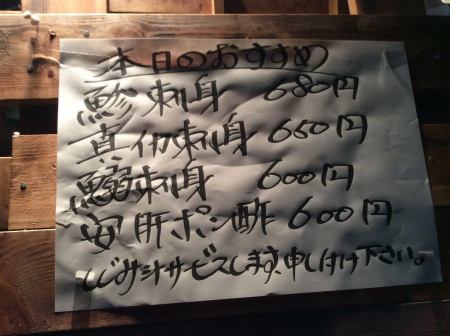 本日のおすすめ
鯵刺身 680円
真イカ刺身 650円
鰯刺身 600円
安肝ポン酢 600円
しじみ汁サービスします、申し付け下さい。